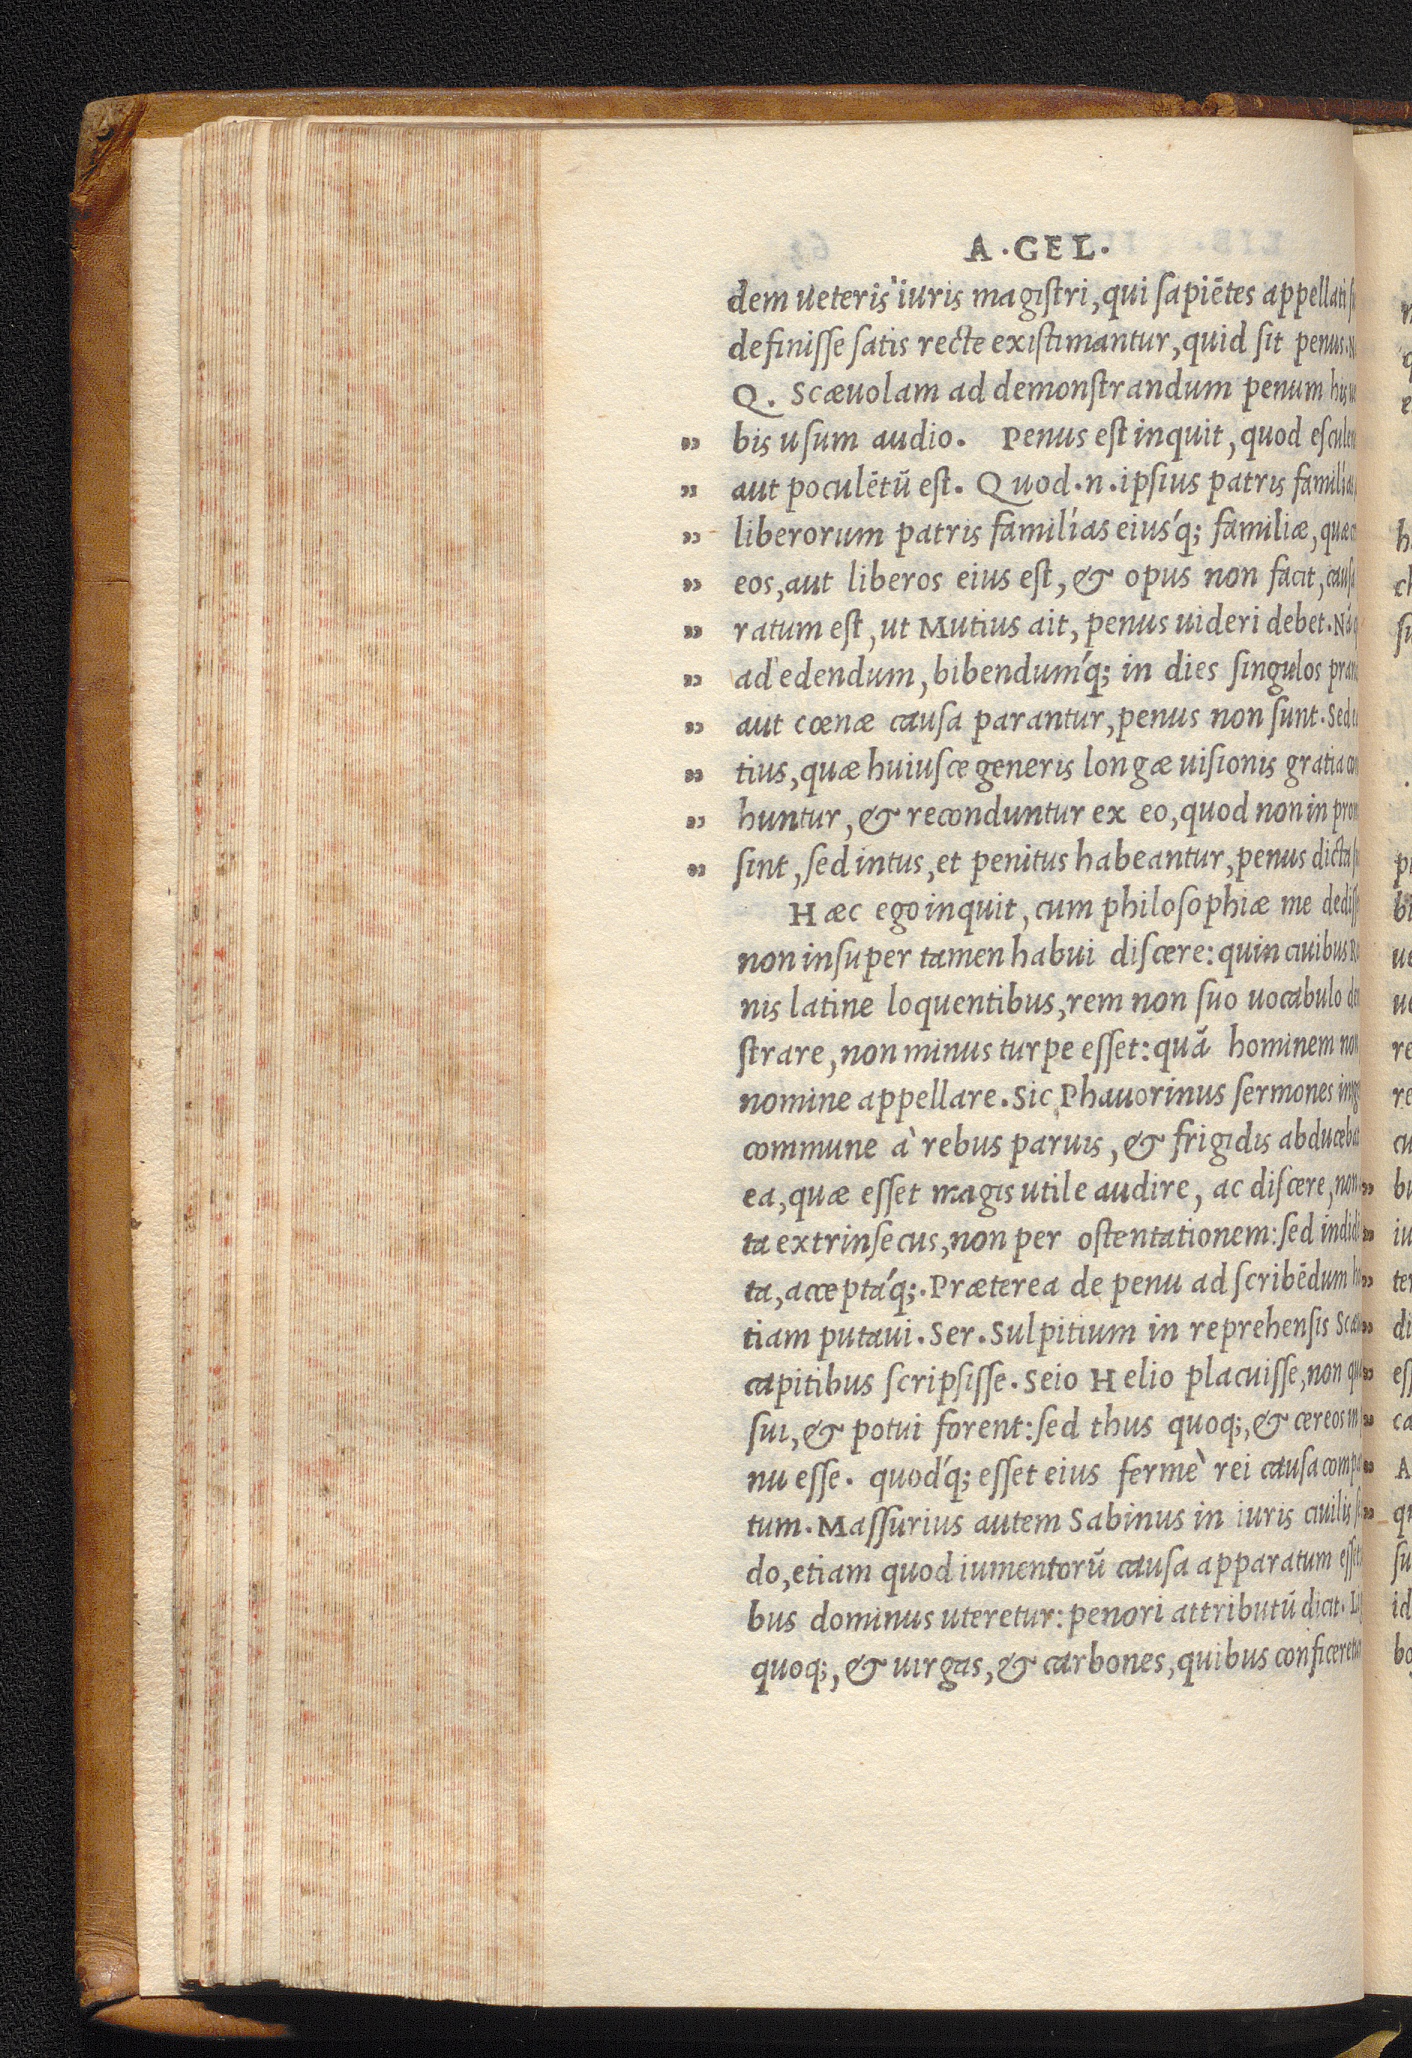 A·GEL·
dem ueteris iuris magiſtri, qui ſapiētes appellati
definiſſe ſatis recte exiſtimantur, quid ſit penus.
Q. Scæuolam ad demonſtrandum penum his
„ bis uſum audio. Penus eſt inquit, quod
„ aut poculētū eſt. Quod.n.ipſius patris
„ liberorum patris familías eius'q; familiæ,
„ eos, aut liberos eius eſt, & opus non facit,
„ ratum eſt, ut Mutius ait, penus uideri debet.
„ ad edendum, bibendum'q; in dies ſingulos
„ aut cœnæ cauſa parantur, penus non ſunt. Sed
„ tius, quæ huiuſce generis longæ uiſionis gratia
„ huntur, & reconduntur ex eo, quod non in
„ ſint, ſed intus, et penitus habeantur, penus dicta
Hæc ego inquit, cum philoſophiæ me
non inſuper tamen habui diſcere: quin ciuibus
nis latine loquentibus, rem non ſuo uocabulo
ſtrare, non minus turpe eſſet: quā hominem
nomine appellare. Sic Phauorinus ſermones
commune à rebus paruis, & frigidis
ea, quæ eſſet magis utile audire, ac diſcere, non
ta extrinſecus, non per oſtentationem: ſed
ta, acceptá'q;. Præterea de penu ad ſcribēdum
tiam putaui. Ser. Sulpitium in reprehenſis
capitibus ſcripſiſſe. Seio Helio placuiſſe, non
ſui, & potui forent: ſed thus quoq;, & cereos
nu eſſe. quod'q; eſſet eius fermè rei cauſa
tum. Maſſurius autem Sabinus in iuris ciuilis
do, etiam quod iumentorū cauſa apparatum
bus dominus uteretur: penori attributū dicit.
quoq;, & uirgas, & carbones, quibus